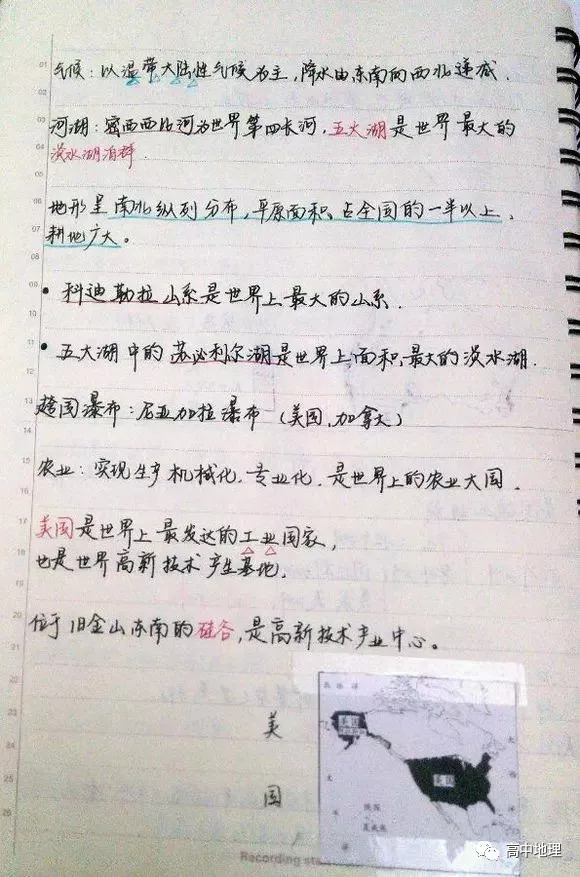 气候：以温带大陆性气候为主，降水由东南向西北递减．
河湖：密西西比河为世界第四长河，五大湖是世界最大的
淡水湖泊群．
地形呈南北纵列分布，平原面积占全国的一半以上，
耕地广大。
• 科迪勒拉山系是世界上最大的山系．
• 五大湖中的苏必利尔湖是世界上面积最大的淡水湖．
跨国瀑布：尼亚加拉瀑布（美国，加拿大）
农业：实现生产机械化，专业化，是世界上的农业大国．
美国是世界上最发达的工业国家，
也是世界高新技术产生基地．
位于旧金山东南的硅谷，是高新技术产业中心。
美
国
美国
美国
大
西
洋
太
平
洋
01
02
03
04
06
07
08
09
10
11
12
13
14
15
16
17
18
19
20
21
22
23
24
25
26
Recording sta
高中地理